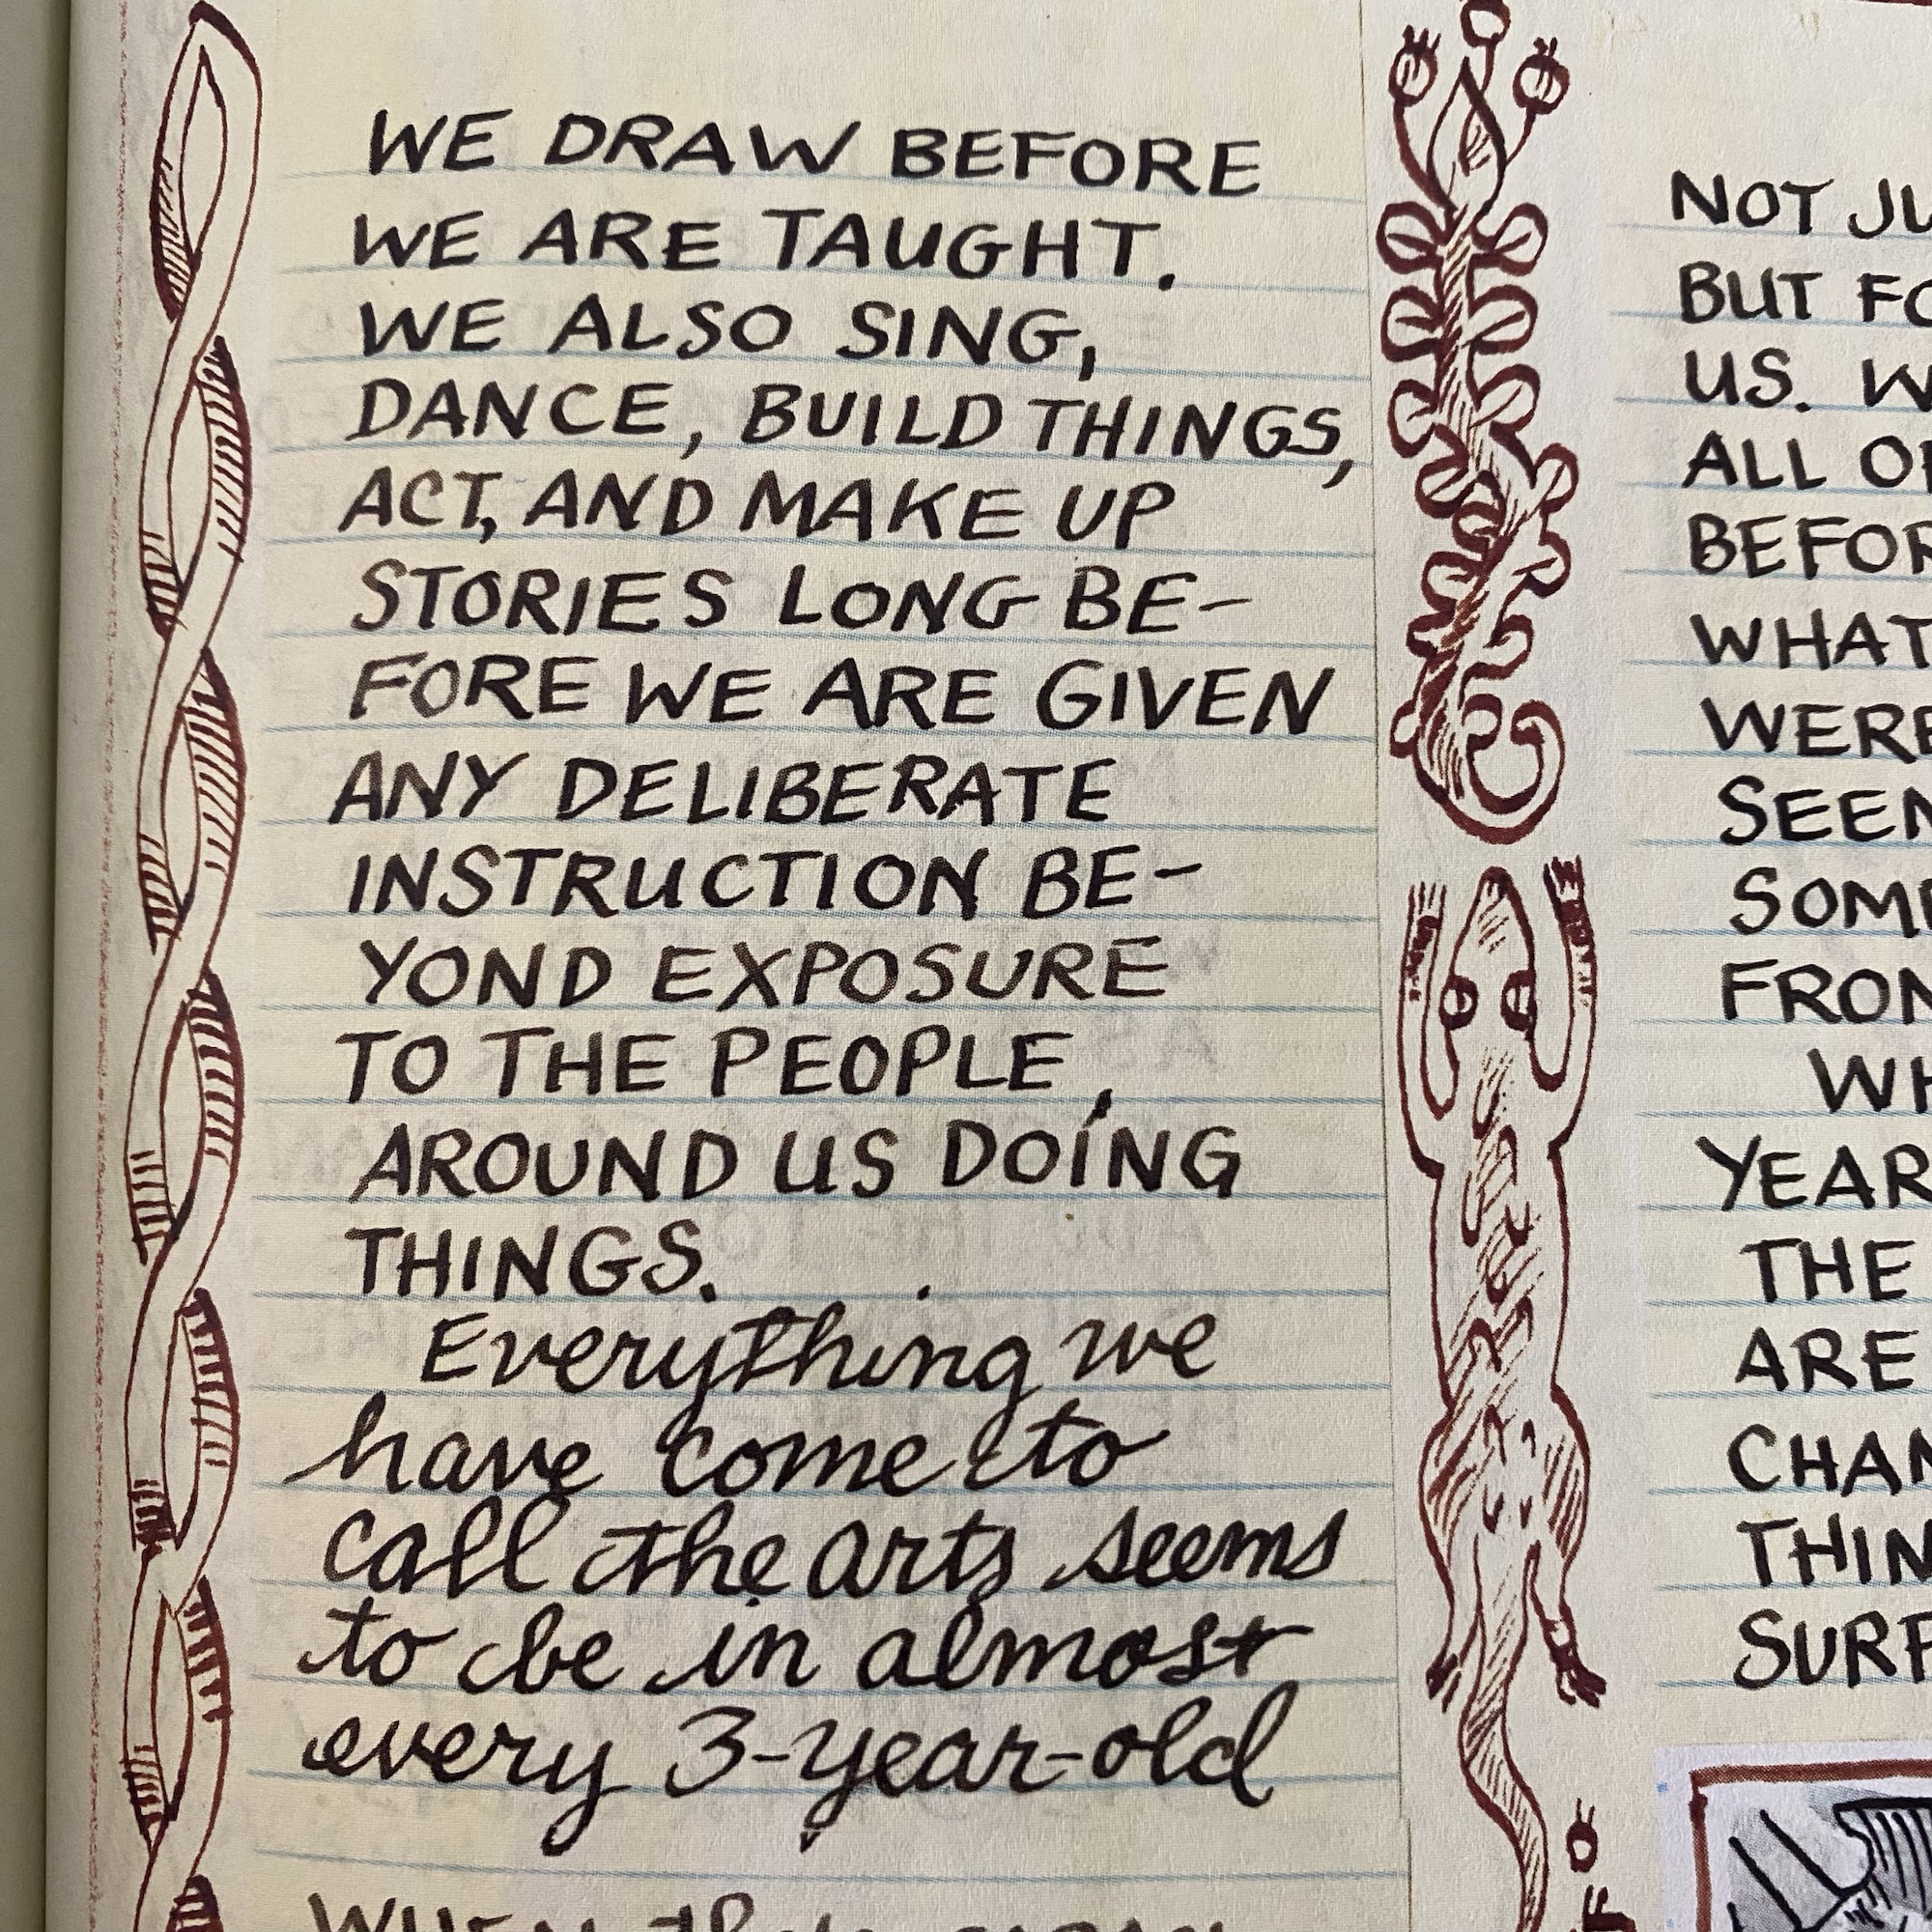 WE DRAW BEFORE
WE ARE TAUGHT.
WE ALSO SING,
DANCE, BUILD THINGS,
ACT, AND MAKE UP
STORIES LONG BE-
FORE WE ARE GIVEN
ANY DELIBERATE
INSTRUCTION BE-
YOND EXPOSURE
TO THE PEOPLE
AROUND US DOING
THINGS.
Everything we
have come to
call the arts seems
to be in almost
every 3-year-old
NOT
BUT
US.
ALL
WHAT
WERE
THE
ARE